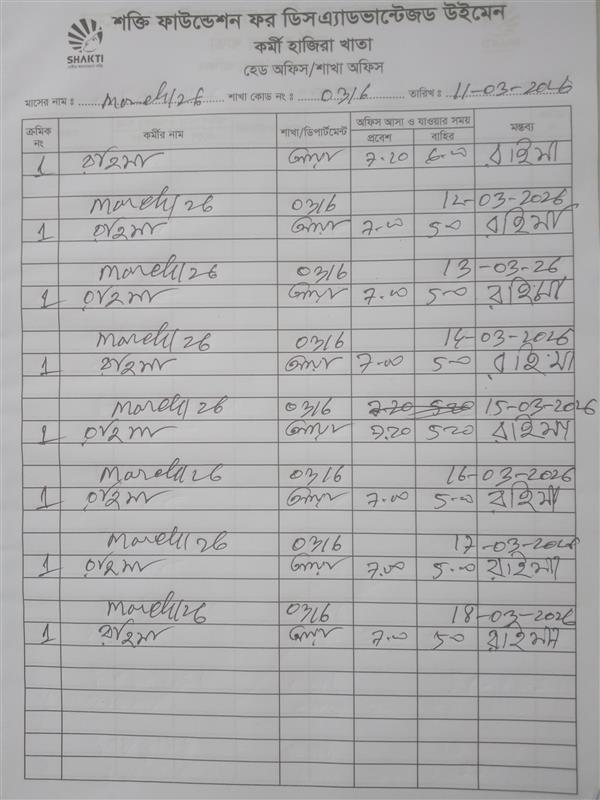 শক্তি ফাউন্ডেশন ফর ডিসএ্যাডভান্টেজড উইমেন
SHAKTI
কর্মী হাজিরা খাতা
হেড অফিস/শাখা অফিস
মাসের নাম : March/26 শাখা কোড নং : 0316 তারিখ : 11-03-2026
ক্রমিক নং কর্মীর নাম শাখা/ডিপার্টমেন্ট অফিস আসা ও যাওয়ার সময় মন্তব্য
প্রবেশ বাহির
1 রহিমা 7.20 6.00 রহিমা
March/26 0316 12-03-2026
1 রহিমা 7.00 5.00 রহিমা
March/26 0316 13-03-26
1 রহিমা 7.00 5.00 রহিমা
March/26 0316 14-03-2026
1 রহিমা 7.00 5.00 রহিমা
March/26 0316 15-03-2026
1 রহিমা 7.20 5.20 রহিমা
March/26 0316 16-03-2026
1 রহিমা 7.00 5.00 রহিমা
March/26 0316 17-03-2026
1 রহিমা 7.00 5.00 রহিমা
March/26 0316 18-03-2026
1 রহিমা 7.00 5.00 রহিমা